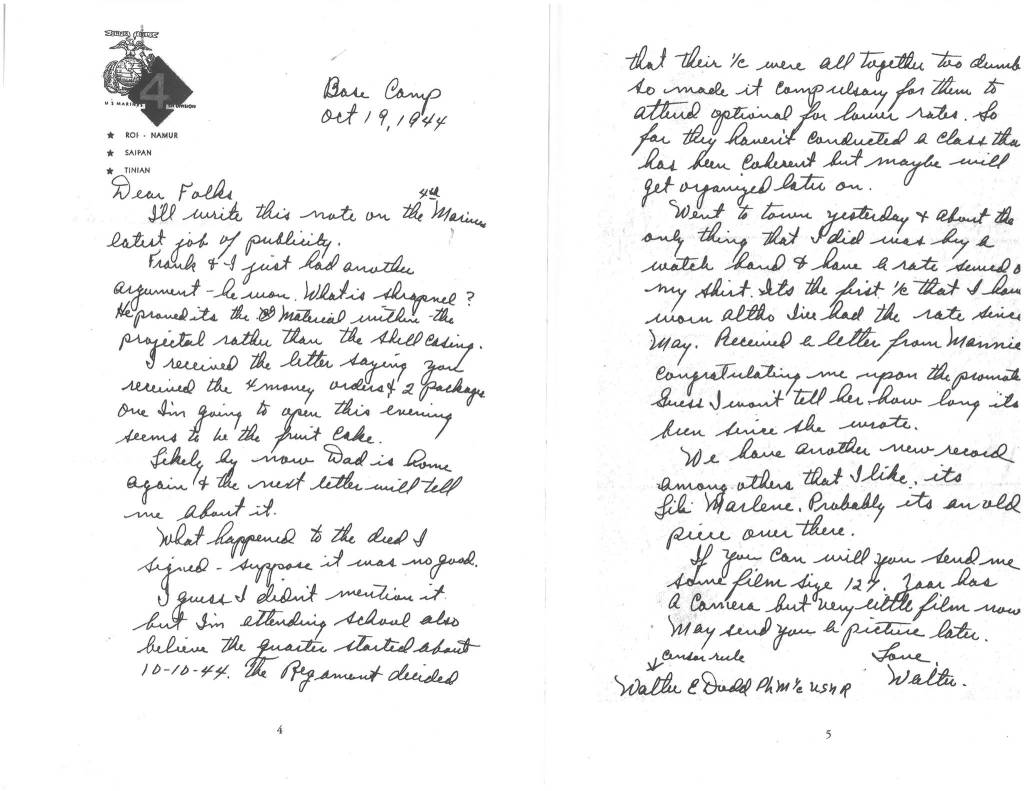 U S MARINES
4
TH DIVISION
★ ROI - NAMUR
★ SAIPAN
★ TINIAN
Base Camp
Oct 19, 1944
Dear Folks
I'll write this note on the 4th Marines
latest job of publicity.
Frank & I just had another
argument - he won. What is shrapnel?
He proved its the Material within the
projectal rather than the shell casing.
I received the letter saying you
received the 4 money orders & 2 packages
one I'm going to open this evening
seems to be the fruit cake.
Likely by now Dad is home
again & the next letter will tell
me about it.
What happened to the deed I
signed - suppose it was no good.
I guess I didn't mention it
but I'm attending school also
believe the quarter started about
10-10-44. The Regament decided
4
that their 1/c were all together too dumb
so made it compulsary for them to
attend optional for lower rates. So
far they haven't conducted a class tha
has been coherent but maybe will
get organized later on.
Went to town yesterday & about the
only thing that I did was buy a
watch band & have a rate sewed o
my shirt. Its the first 1/c that I have
worn altho I've had the rate since
May. Received a letter from Mannie
congratulating me upon the promote
Guess I won't tell her how long its
been since she wrote.
We have another new record
among others that I like, its
Lili Marlene. Probably its an old
piece over there.
If you can will you send me
some film size 127. Zaar has
a camera but very little film now
May send you a picture later.
Love,
Walter.
censor rule
Walter E Dodd PhM 1/c USNR
5